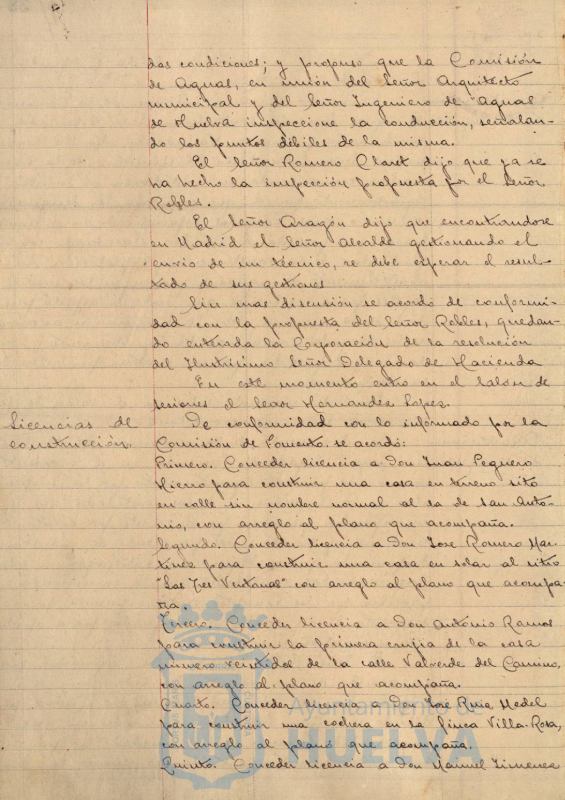 das condiciones; y propuso que la Comisión
de Aguas, en unión del Señor Arquitecto
municipal y del Señor Ingeniero de "Aguas
de Huelva inspeccione la conducción, señalan-
do los puntos débiles de la misma.
El Señor Romero Claret dijo que ya se
ha hecho la inspección propuesta por el Señor
Robles.
El Señor Aragón dijo que encontrandose
en Madrid el Señor Alcalde gestionando el
envio de un técnico, se debe esperar el resul-
tado de sus gestiones
Sin mas discusión se acordo de conformi-
dad con la propuesta del Señor Robles, quedan-
do enterada la Corporación de la resolución
del Ilustrisimo Señor Delegado de Hacienda
En este momento entro en el Salon de
sesiones el Señor Hernandez Lopez.
Licencias de
construcción.
De conformidad con lo informado por la
Comisión de Fomento. se acordó:
Primero. Conceder licencia a Don Juan Peguero
Hierro para construir una casa en terreno sito
en calle sin nombre normal al la de San Anto-
nio, con arreglo al plano que acompaña.
Segundo. Conceder licencia a Don Jose Romero Mar-
tinez para construir una casa en solar al sitio
"Las Tres Ventanas" con arreglo al plano que acompa-
ña.
Tercero. Conceder licencia a Don António Ramos
para construir la primera crujia de la casa
número veintidos de la calle Valverde del Camino,
con arreglo al plano que acompaña.
Cuarto. Conceder licencia a Don Jose Ruiz Medel
para construir una cochera en la finca Villa-Rosa,
con arreglo al plano que acompaña.
Quinto. Conceder licencia a Don Manuel Jimenez
Ayuntamiento de
HUELVA